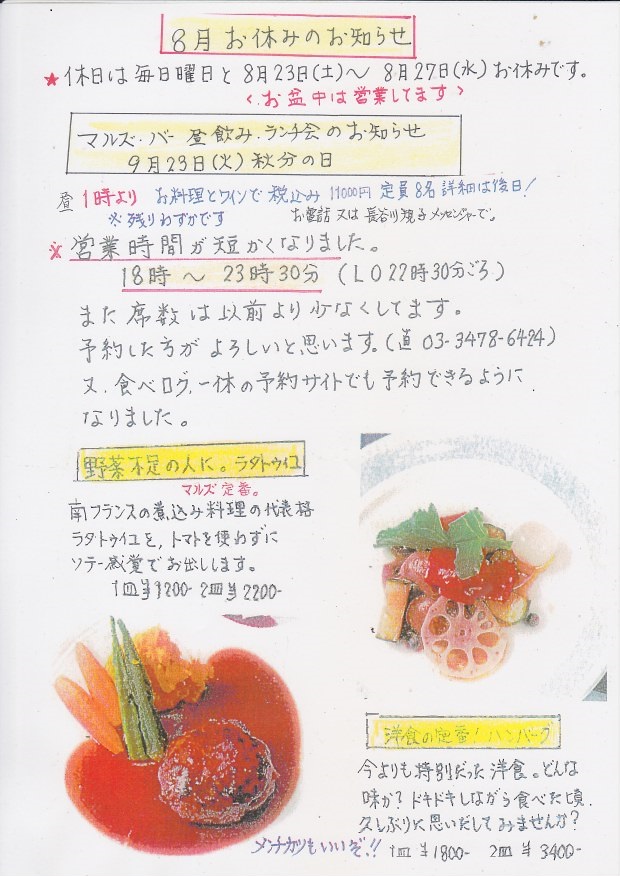 8月 お休みのお知らせ
★休日は毎日曜日と8月23日(土)〜8月27日(水)お休みです。
<お盆中は営業してます>
マルズ・バー 昼飲み.ランチ会のお知らせ
9月23日(火)秋分の日
昼1時より お料理とワインで税込み11000円 定員8名 詳細は後日!
※残りわずかです お電話又は長谷川 子メッセンジャーで。
※営業時間が短かくなりました。
18時〜23時30分(LO22時30分ごろ)
また席数は以前より少なくしてます。
予約した方がよろしいと思います。(直03-3478-6424)
又.食べログ.一休の予約サイトでも予約できるように
なりました。
野菜不足の人に。ラタトゥイユ
マルズ定番。
南フランスの煮込み料理の代表格
ラタトゥイユを,トマトを使わずに
ソテー感覚でお出しします。
1皿¥1200- 2皿¥2200-
洋食の定番!ハンバーグ
今よりも特別だった洋食。どんな
味か?ドキドキしながら食べた頃.
久しぶりに思いだしてみませんな?
メンチカツもいいぞ!! 1皿¥1800- 2皿¥3400-